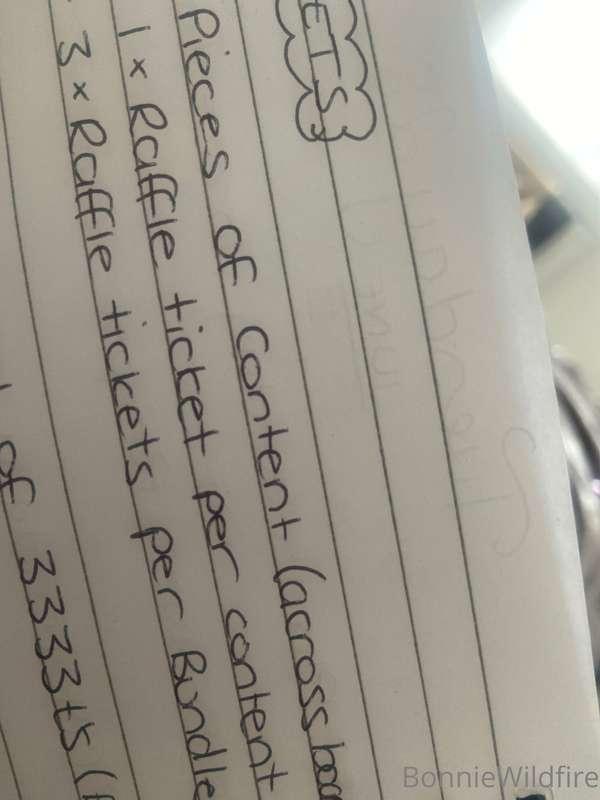 ETS
Pieces of Content (across boa
1 x Raffle ticket per content
3 x Raffle tickets per Bundle
of 3333ts (
BonnieWildfire